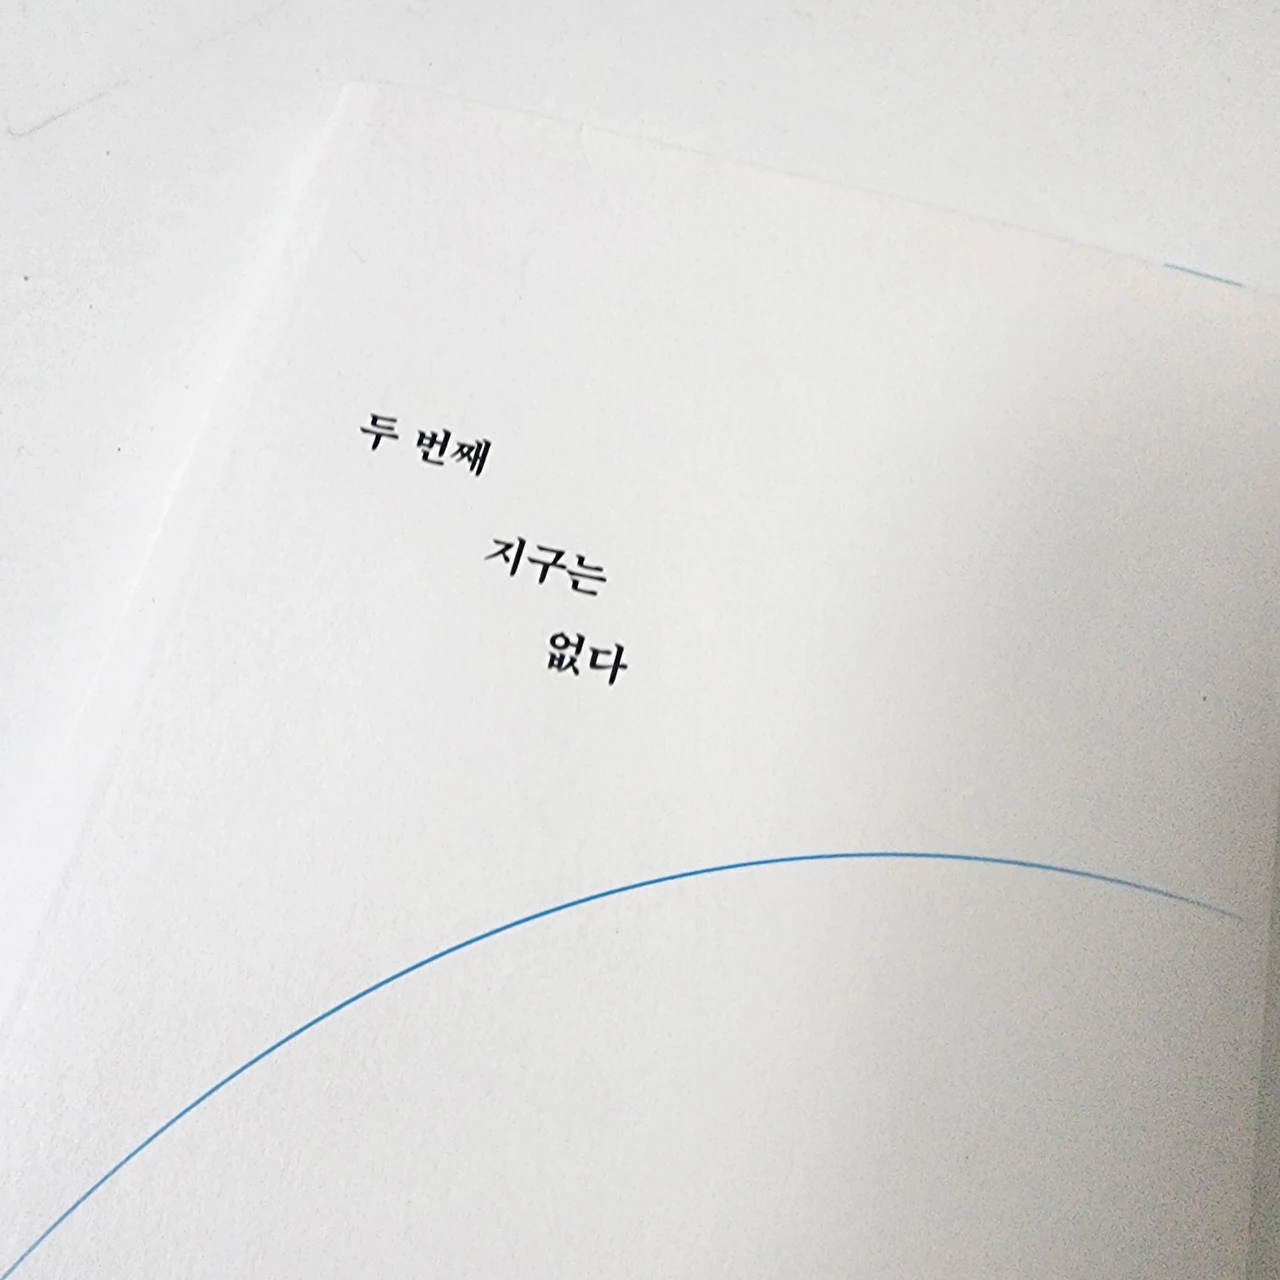 두 번째
지구는
없다